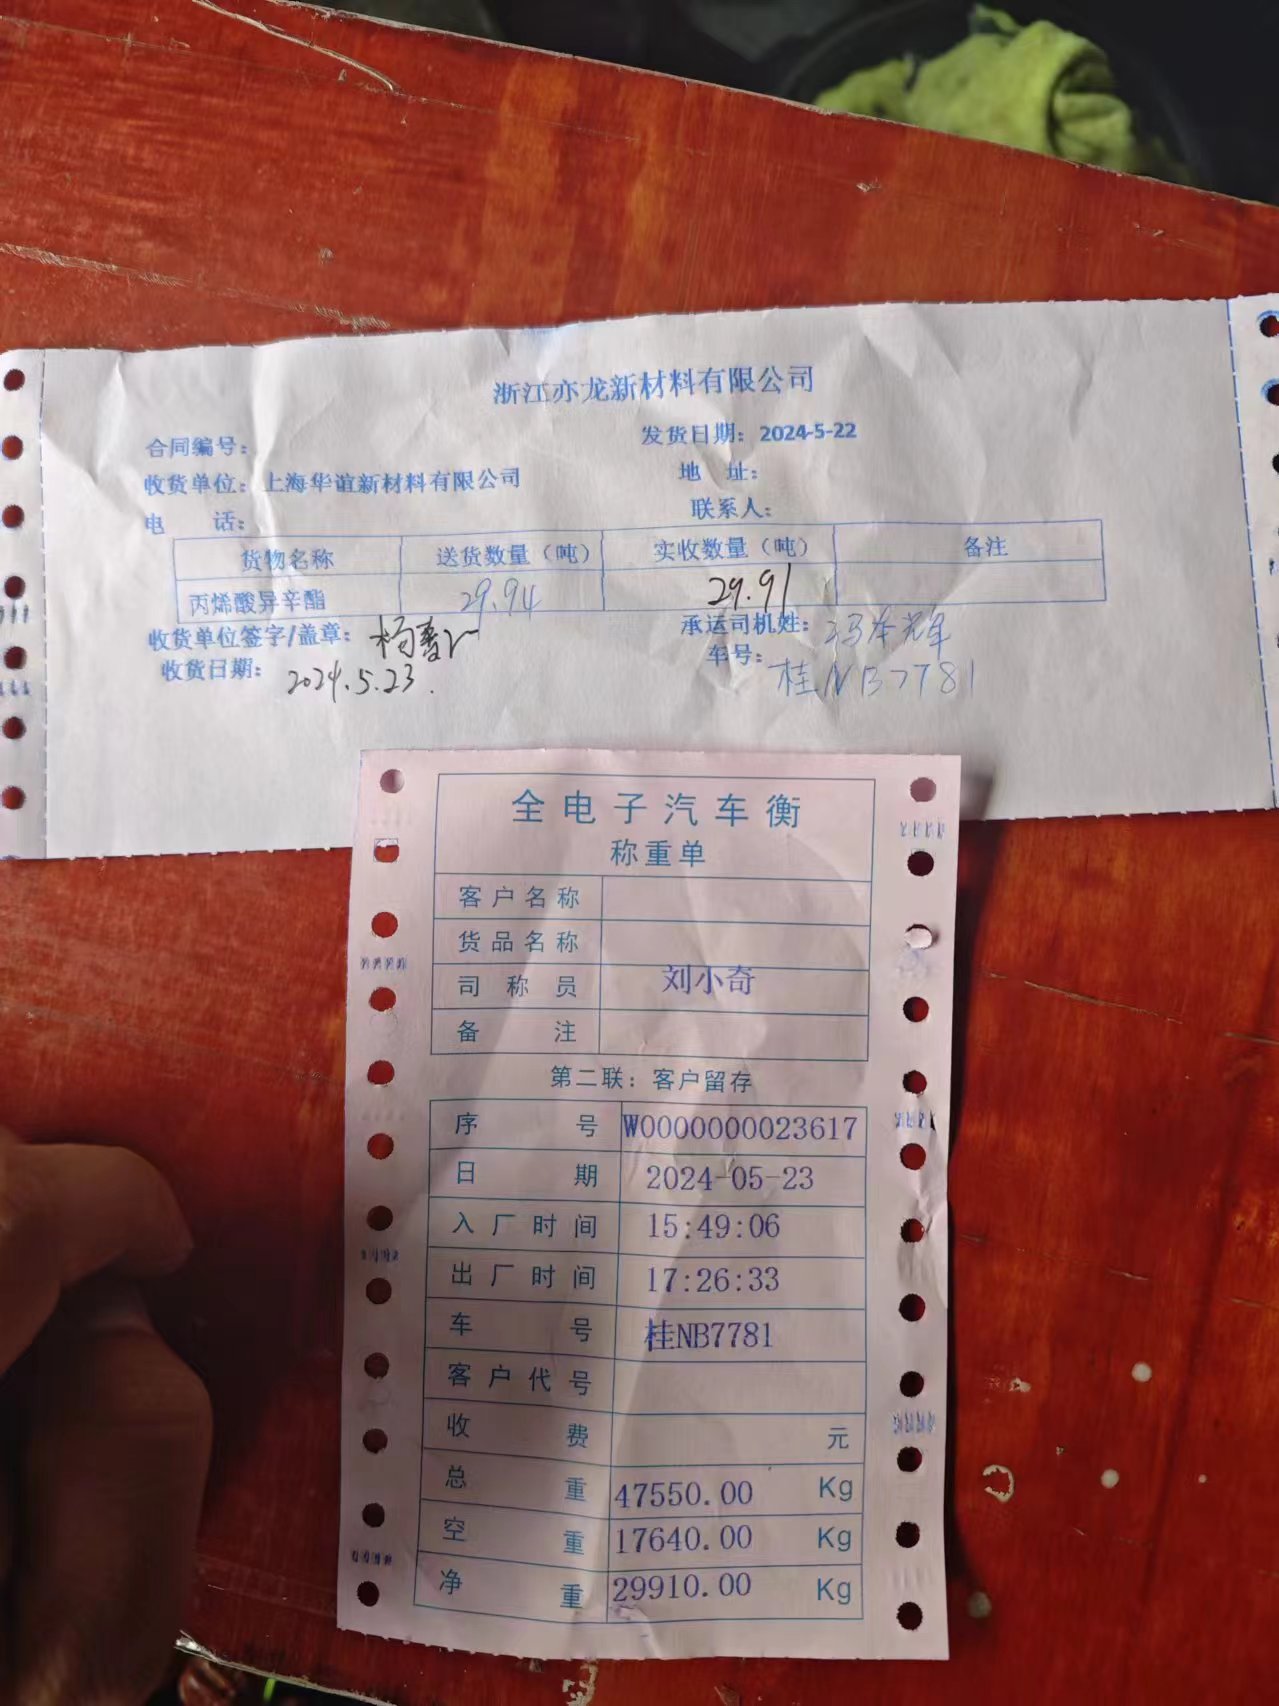 浙江亦龙新材料有限公司
合同编号： 发货日期：2024-5-22
收货单位：上海华谊新材料有限公司 地 址：
电 话： 联系人：
货物名称 送货数量（吨） 实收数量（吨） 备注
丙烯酸异辛酯 29.94 29.91
收货单位签字/盖章： 承运司机姓：
收货日期：2024.5.23. 车号：桂NB7781
全电子汽车衡
称重单
客户名称
货品名称
司称员 刘小奇
备注
第二联：客户留存
序号 W0000000023617
日期 2024-05-23
入厂时间 15:49:06
出厂时间 17:26:33
车号 桂NB7781
客户代号
收费 元
总重 47550.00 Kg
空重 17640.00 Kg
净重 29910.00 Kg